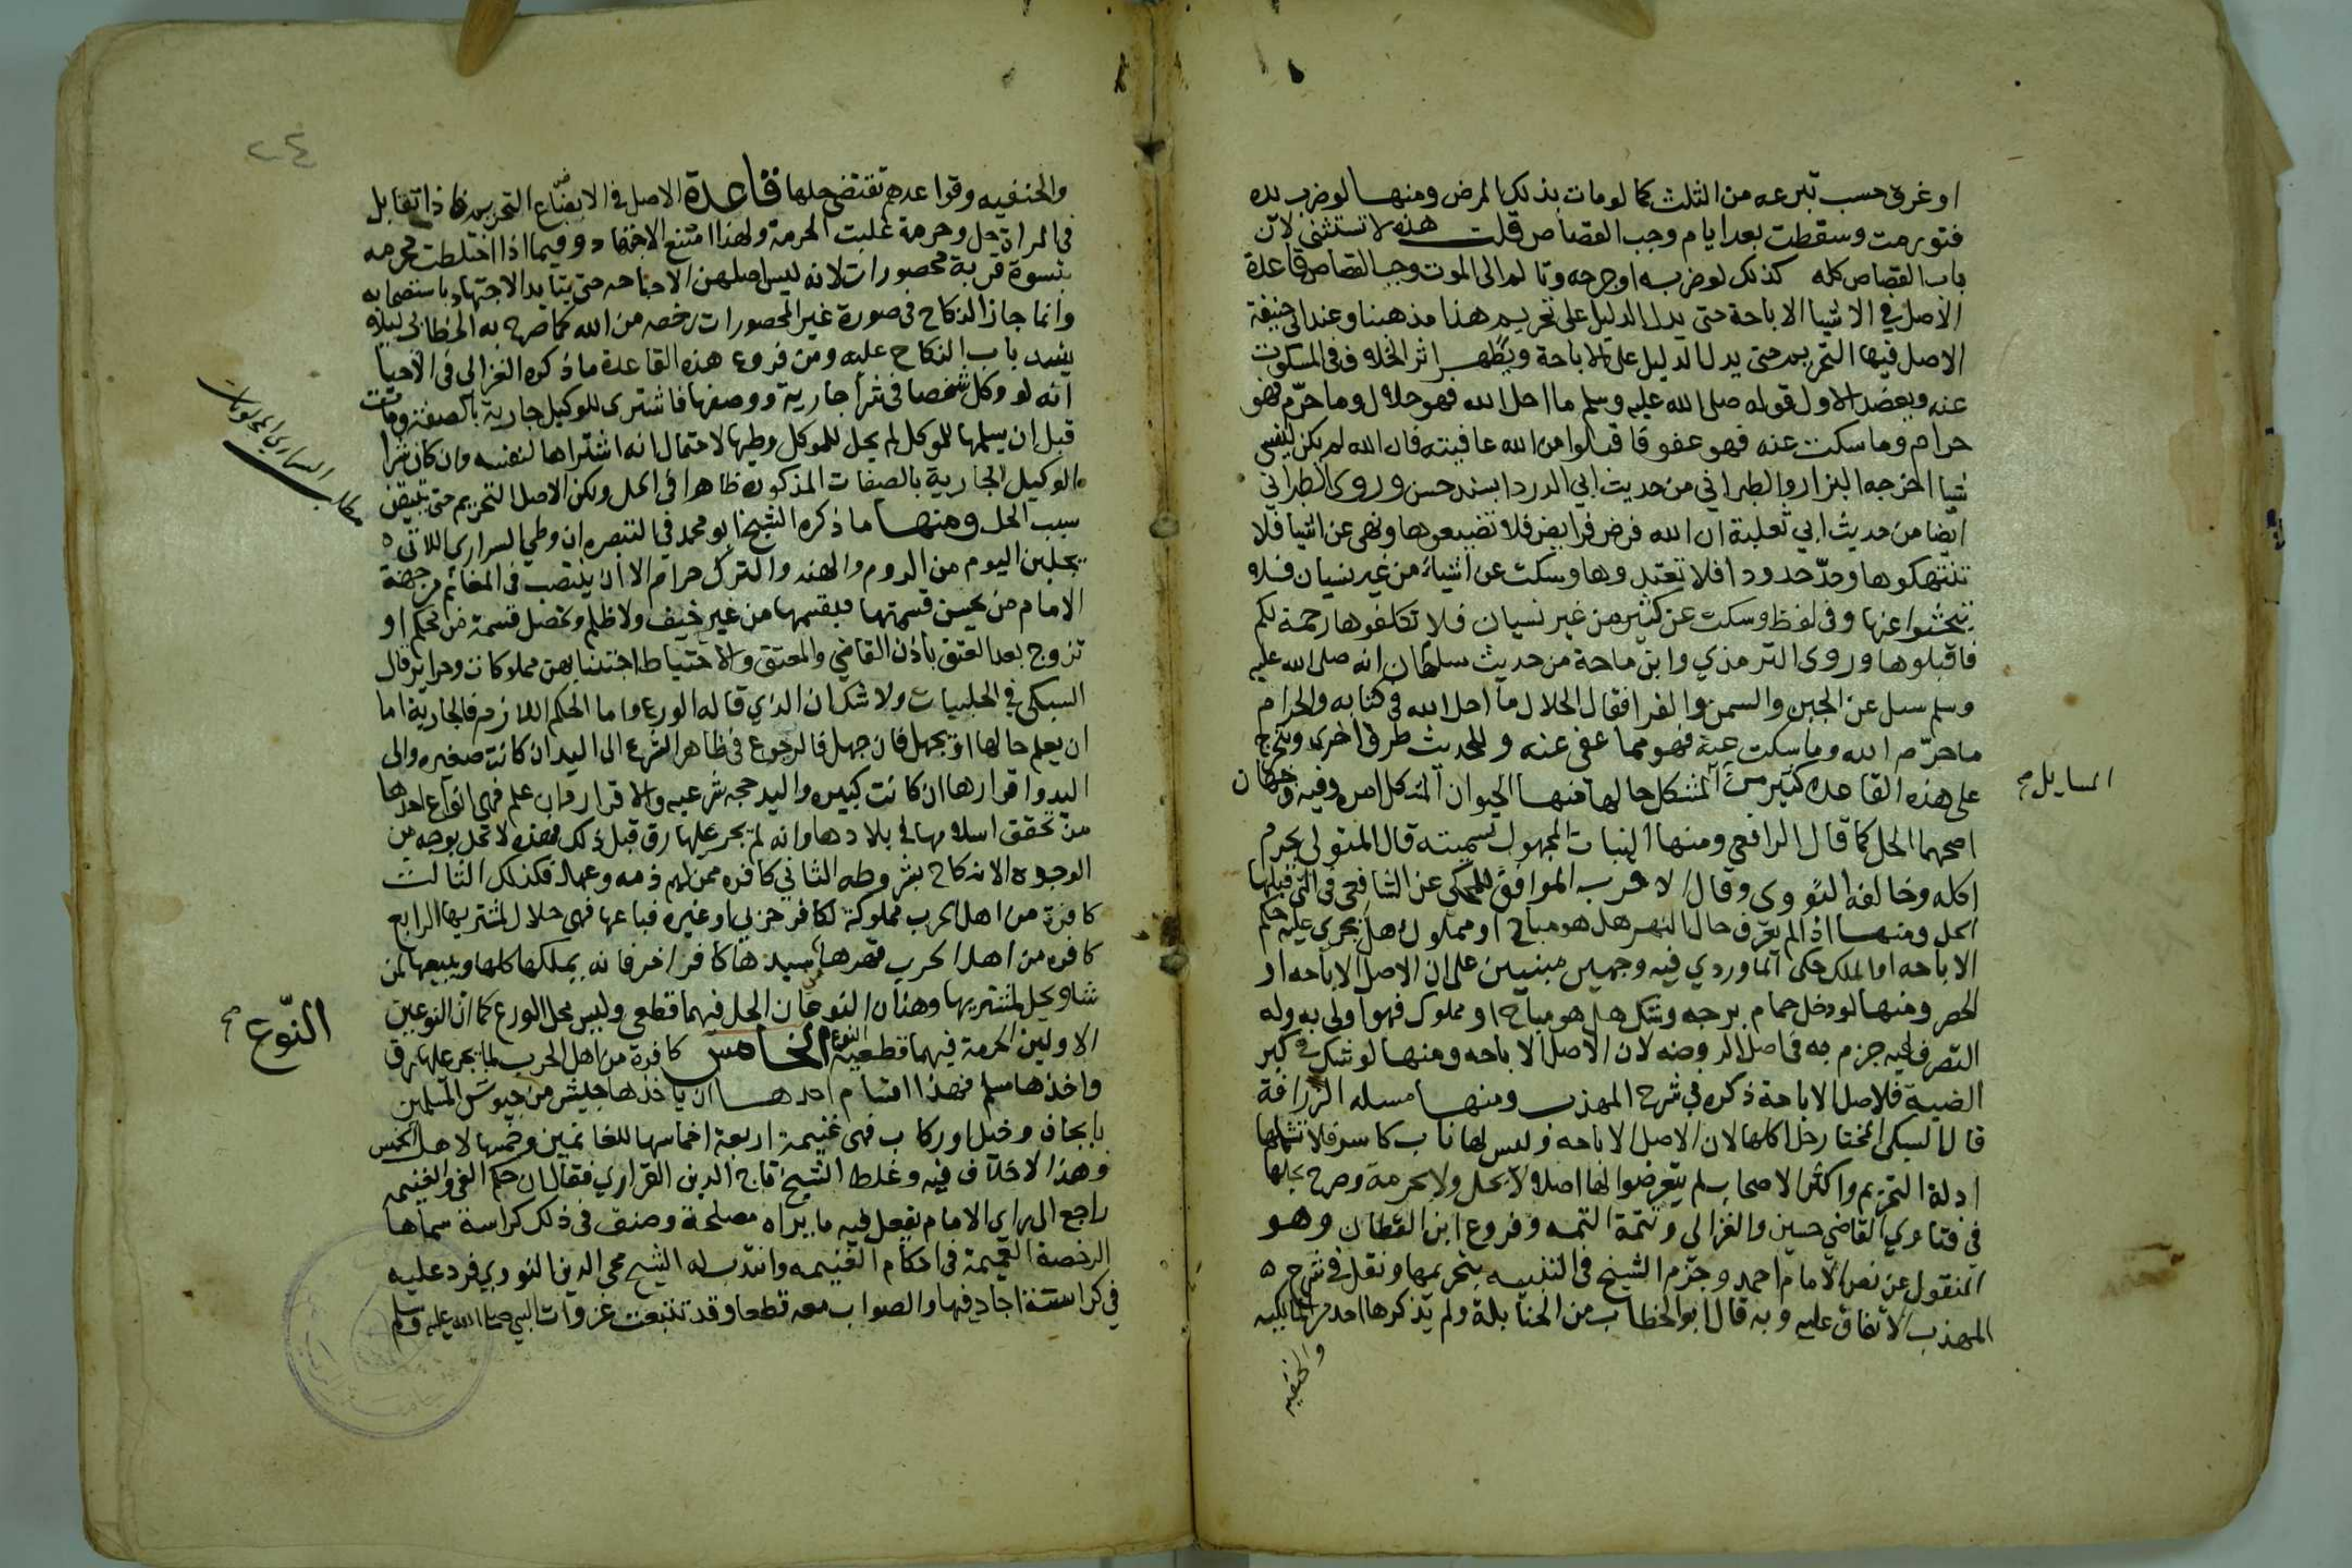 او غرق حسب تبرعه من الثلث كما لو مات بذلك المرض ومنها لو ضرب يده
فتورمت وسقطت بعد ايام وجب القصاص قلت هذه لا تستثنى لان
باب القصاص كله كذلك لو ضربه او جرحه وتالم الى الموت وجب القصاص قاعدة
الاصل في الاشيا الاباحة حتى يدل الدليل على تحريم هذا مذهبنا وعند ابي حنيفة
الاصل فيها التحريم حتى يدل الدليل على الاباحة ويظهر اثر الخلاف في المسكوت
عنه ويعضد الاول قوله صلى الله عليه وسلم ما احل الله فهو حلال وما حرّم فهو
حرام وما سكت عنه فهو عفو فاقبلوا من الله عافيته فان الله لم يكن لينسى
شيا اخرجه البزار والطبراني من حديث ابي الدردا بسند حسن وروى الطبراني
ايضا من حديث ابي ثعلبة ان الله فرض فرايض فلا تضيعوها ونهى عن اشيا فلا
تنتهكوها وحدّ حدودا فلا تعتدوها وسكت عن اشياء من غير نسيان فلا
تبحثوا عنها وفي لفظ وسكت عن كثير من غير نسيان فلا تتكلفوها رحمة لكم
فاقبلوها وروى الترمذي وابن ماجة من حديث سلمان انه صلى الله عليه
وسلم سل عن الجبن والسمن والفرا فقال الحلال ما احل الله في كتابه والحرام
ما حرّم الله وما سكت عنه فهو مما عفى عنه وللحديث طرق اخرى ويتخرج
على هذه القاعده كثير من المشكل حالها فمنها الحيوان المشكل امره وفيه وجهان
المسايل صح
اصحهما الحل كما قال الرافعي ومنها النبات المجهول تسميته قال المتولي يحرم
اكله وخالفه النووى وقال الاقرب الموافق للمحكي عن الشافعي في التي قبلها
الحل ومنها اذا لم يعرف حال النهر هل هو مباح او مملوك هل يجري عليه حكم
الاباحه او الملك حكى الماوردي فيه وجهين مبنيين على ان الاصل الاباحه او
الحصر ومنها لو دخل حمام برجه وشك هل هو مباح او مملوك فهو اولى به وله
التصرف فيه جزم به في اصل الروضه لان الاصل الاباحه ومنها لو شك في كبر
الضبة فلاصل الاباحة ذكره في شرح المهذب ومنها مسله الزرافة
قال السبكي المختار حل اكلها لان الاصل الاباحه وليس لها ناب كاسر فلا تشملها
ادلة التحريم واكثر الاصحاب لم يتعرضوا لها اصلا لا بحل ولا بحرمة وصرح بحلها
في فتاوي القاضي حسين والغزالي وتتمة التتمه وفروع ابن القطان وهو
المنقول عن نص الامام احمد وجزم الشيخ في التنبيه بتحريمها ونقل في شرح
المهذب الاتفاق عليه وبه قال ابو الخطاب من الحنابلة ولم يذكرها احد من المالكيه
والحنفيه
٢٤
والحنفيه وقواعدهم تقتضي حلها قاعدة الاصل في الابضاع التحريم فاذا تقابل
في المراة حل وحرمة غلبت الحرمة ولهذا امتنع الاجتهاد وفيما اذا اختلطت محرمه
بنسوة قرية محصورات لانه ليس اصلهن الاباحه حتى يتايد الاجتهاد باستصحابه
وانما جاز النكاح في صورة غير المحصورات رخصه من الله كما صرح به الخطابي ليلا
ينسد باب النكاح عليه ومن فروع هذه القاعدة ما ذكره الغزالي في الاحيا
انه لو وكل شخصا في شرا جارية ووصفها فاشترى للوكيل جارية بالصفة ومات
قبل ان يسلمها للموكل لم يحل للموكل وطيها لاحتمال انه اشتراها لنفسه وان كان شرا
الوكيل الجارية بالصفات المذكوره ظاهرا في الحل ولكن الاصل التحريم حتى يتيقن
سبب الحل ومنها ما ذكره الشيخ ابو محمد في التبصره ان وطي السراري اللاتي
السراري المجلوبات
يجلبن اليوم من الروم والهند والترك حرام الا ان ينتصب في المغانم من جهة
الامام من يحسن قسمتها فيقسمها من غير حيف ولا ظلم وتحصل قسمة من محكم او
تزوج بعد العتق باذن القاضي والمعتق والاحتياط اجتنابهن مملوكات وحراير قال
السبكي في الحلبيات ولا شك ان الذي قاله الورع واما الحكم اللازم فالجارية اما
ان يعلم حالها او يجهل فان جهل فالرجوع في ظاهر الشرع الى اليد ان كانت صغيره والى
اليد واقرارها ان كانت كبيره واليد حجه شرعيه والاقرار وان علم فهي انواع احدها
من تحقق اسلامها في بلادها وانه لم يجر عليها رق قبل ذلك فهذه لا تحل بوجه من
الوجوه الا بنكاح بشروطه الثاني كافره ممن لهم ذمه وعهد فكذلك الثالث
كافرة من اهل الحرب مملوكة لكافر حربي او غيره فباعها فهي حلال لمشتريها الرابع
كافره من اهل الحرب قهرها سيدها كافر اخر فانه يملكها كلها ويبيعها لمن
شا ويحل لمشتريها وهذان النوعان الحل فيهما قطعي وليس محل الورع كما ان النوعين
الاولين الحرمة فيهما قطعية النوع الخامس كافرة من اهل الحرب لم يجر عليها رق
النّوع صح
واخذها مسلم فهذا اقسام احدها ان ياخذها جيش من جيوش المسلمين
بايجاف وخيل او ركاب فهي غنيمة اربعة اخماسها للغانمين وخمسها لاهل الخمس
وهذا لا خلاف فيه وغلط الشيخ تاج الدين الفزاري فقال ان حكم الفي والغنيمه
راجع الى راي الامام يفعل فيه ما يراه مصلحة وصنف في ذلك كراسة سماها
الرخصة العميمة في احكام الغنيمه وانتدب له الشيخ محيي الدين النووي فرد عليه
في كراسة اجاد فيها والصواب معه قطعا وقد تتبعت غزوات النبي صلى الله عليه وسلم